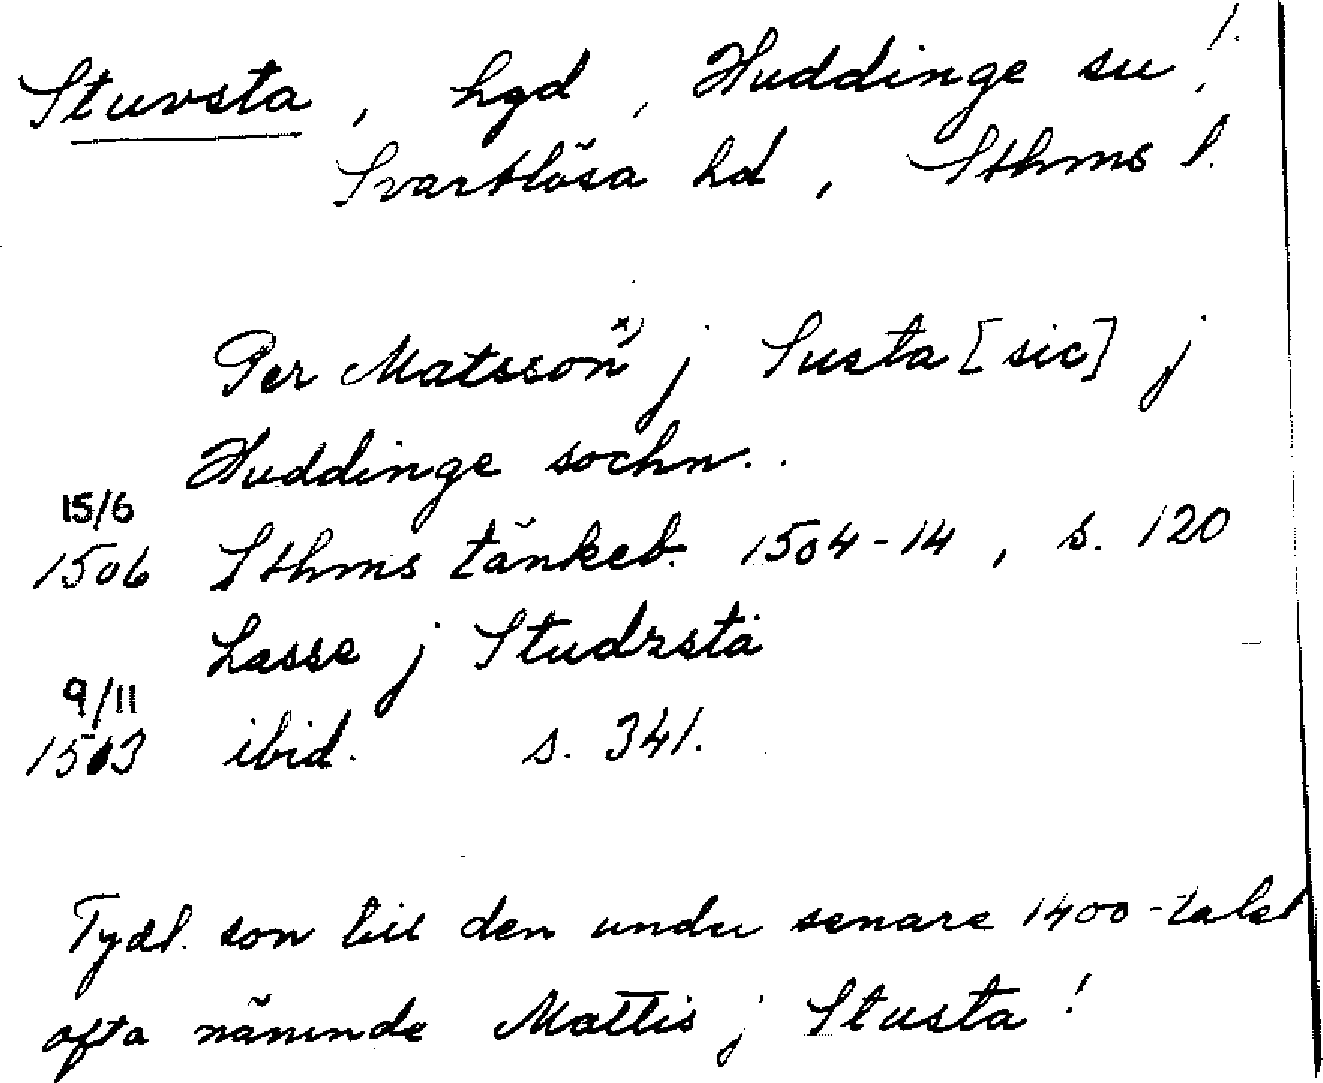 Stuvsta, hgd, Huddinge sn!
Svartlösa hd, Sthms l.
Per Matsson x) j Susta [sic] j
Huddinge sochn..
15/6
1506 Sthms tänkeb. 1504-14, s. 120
Lasse j Studzsta
9/11
1513 ibid. s. 341.
Tydl. son till den under senare 1400-talet
ofta nämnde Mattis j Stusta!